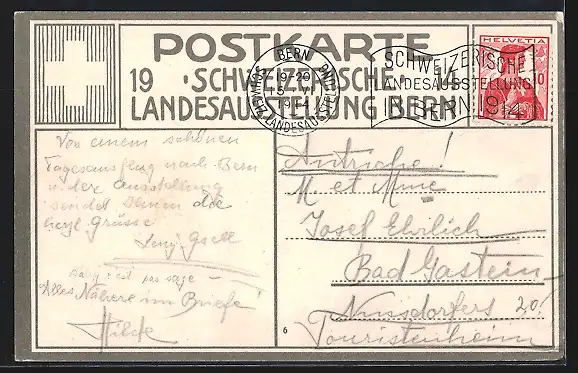 POSTKARTE
19 · SCHWEIZERISCHE · 14
LANDESAUSSTELLUNG BERN
BERN
SCHWEIZERISCHE
LANDESAUSSTELLUNG
BERN 1914
HELVETIA
10
Von einem schönen
Tagesausflug nach Bern
u. der Ausstellung
sendet Ihnen die
herzl. Grüsse
Gsell
c'est pas sage
Alles Nähere im Briefe!
Hilde
Autriche!
M et Mme
Josef Ehrlich
Bad Gastein
Nussdorfers
Touristenheim
6